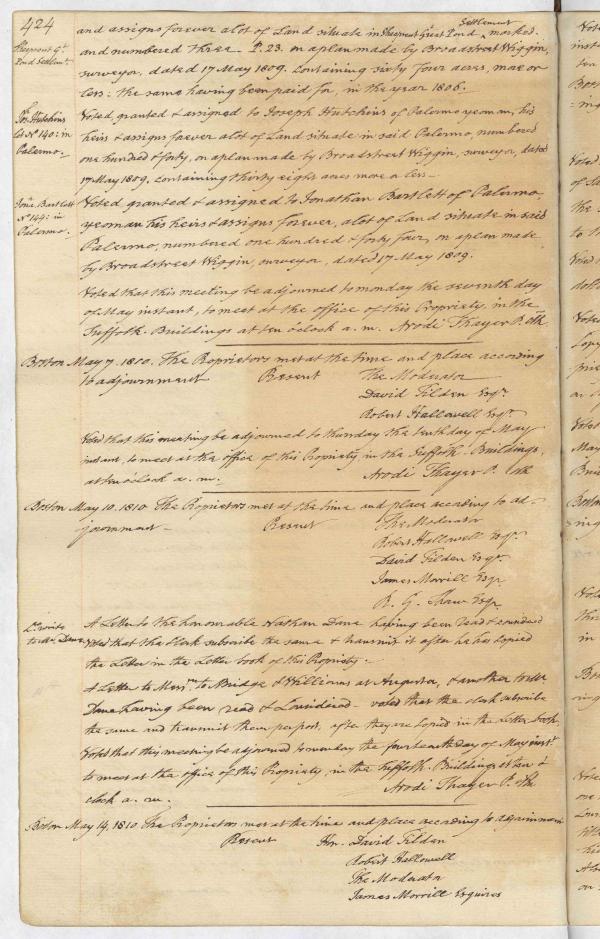 424
Sheepscut Gt.
Pond Settlemt.
Settlement
and assigns forever a lot of Land situate in Sheepscut Great Pond marked
and numbered three - P. 23. on a plan made by Broadstreet Wiggin,
surveyor, dated 17 May 1809. containing sixty four acres, more or
less: the same having been paid for, in the year 1806.
Jos. Hutchins
lot No. 140: in
Palermo.
Voted, granted & assigned to Joseph Hutchins of Palermo yeoman, his
heirs & assigns forever a lot of Land situate in said Palermo, numbered
one hundred & forty, on a plan made by Broadstreet Wiggin, surveyor, dated
17 May 1809. containing thirty eight acres more or less -
Jona. Bartlett
No. 144: in
Palermo.
Voted granted & assigned to Jonathan Bartlett of Palermo,
yeoman his heirs & assigns forever, a lot of Land situate in said
Palermo, numbered one hundred & forty four, on a plan made
by Broadstreet Wiggin, surveyor, dated 17 May 1809.
Voted that this meeting be adjourned to monday the seventh day
of May instant, to meet at the office of this Propriety, in the
Suffolk Buildings at ten o'clock a. m. Arodi Thayer P. Clk
Boston May 7. 1810. The Proprietors met at the time and place according
to adjournment Present The Moderator
David Tilden Esqr.
Robert Hallowell Esqr.
Voted that this meeting be adjourned to thursday the tenth day of May
instant, to meet at the office of this Propriety in the Suffolk Buildings,
at ten o'clock a. m. Arodi Thayer P. Clk
Boston May 10. 1810 The Proprietors met at the time and place according to ad-
journment - Present The Moderator
Robert Hallowell Esqr.
David Tilden Esqr.
James Morrill Esqr
R. G. Shaw Esqr
to Mr. Dane
A Letter to the honourable Nathan Dane having been read & considered
Voted that the Clerk subscribe the same & transmit it after he has copied
the Letter in the Letter book of this Propriety -
A Letter to Messrs. Bridge & Williams at Augusta, & another to Mr
Dane having been read & considered - voted that the clerk subscribe
the same and transmit them per post, after they are copied in the Letter book.
Voted that this meeting be adjourned to monday the fourteenth day of May inst.
to meet at the office of this Propriety, in the Suffolk Buildings at ten o'
clock a. m. Arodi Thayer P. Clk
Boston May 14, 1810 The Proprietors met at the time and place according to adjournment
Present Hn. David Tilden
Robert Hallowell
The Moderator
James Morrill Esquires